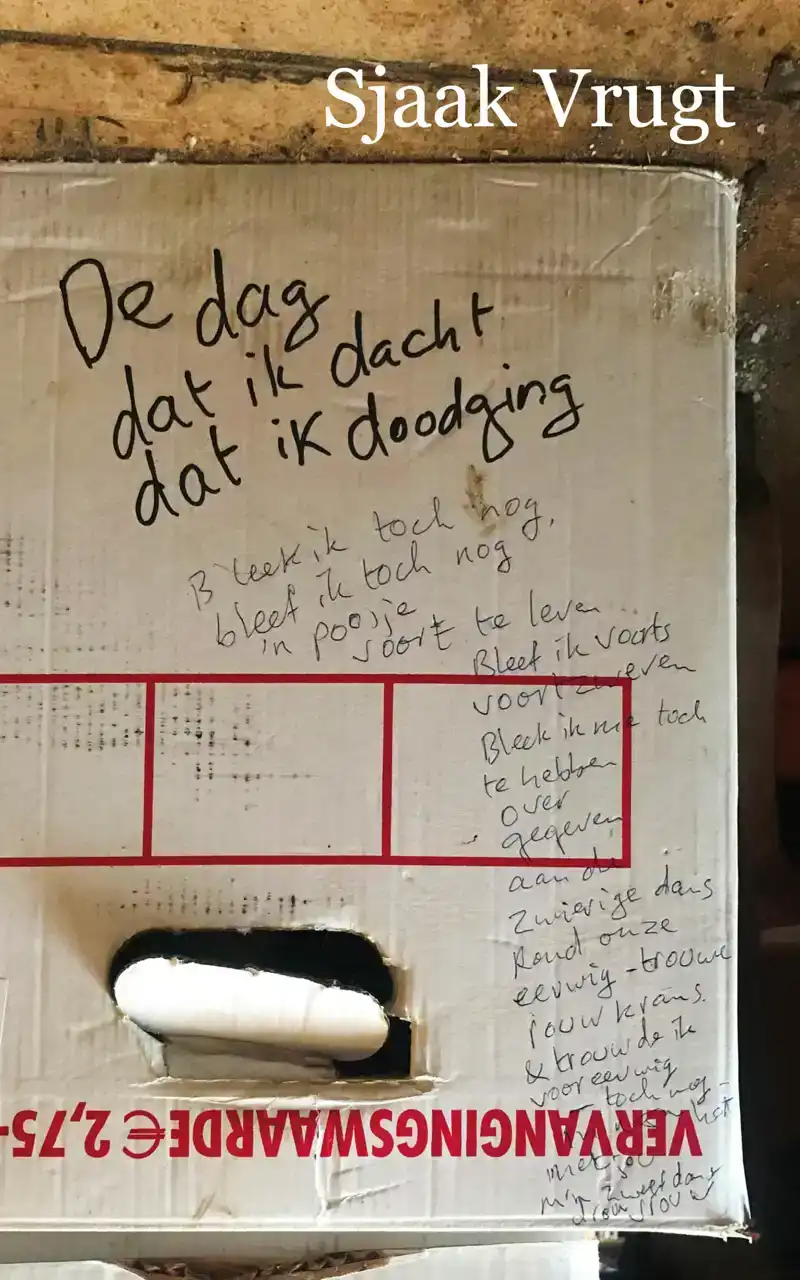 Sjaak Vrugt
De dag
dat ik dacht
dat ik doodging
Bleek ik toch nog,
bleef ik toch nog
in poosje
soort te leven ...
Bleef ik voorts
voortzweven
Bleek ik me toch
te hebben
over
gegeven
aan de
zwierige dans
Rond onze
eeuwig-trouwe
rouwkrans.
& trouwde ik
voor eeuwig
toch nog -
met jou
m'n zweef dans
VERVANGINGSWAARDE € 2,75